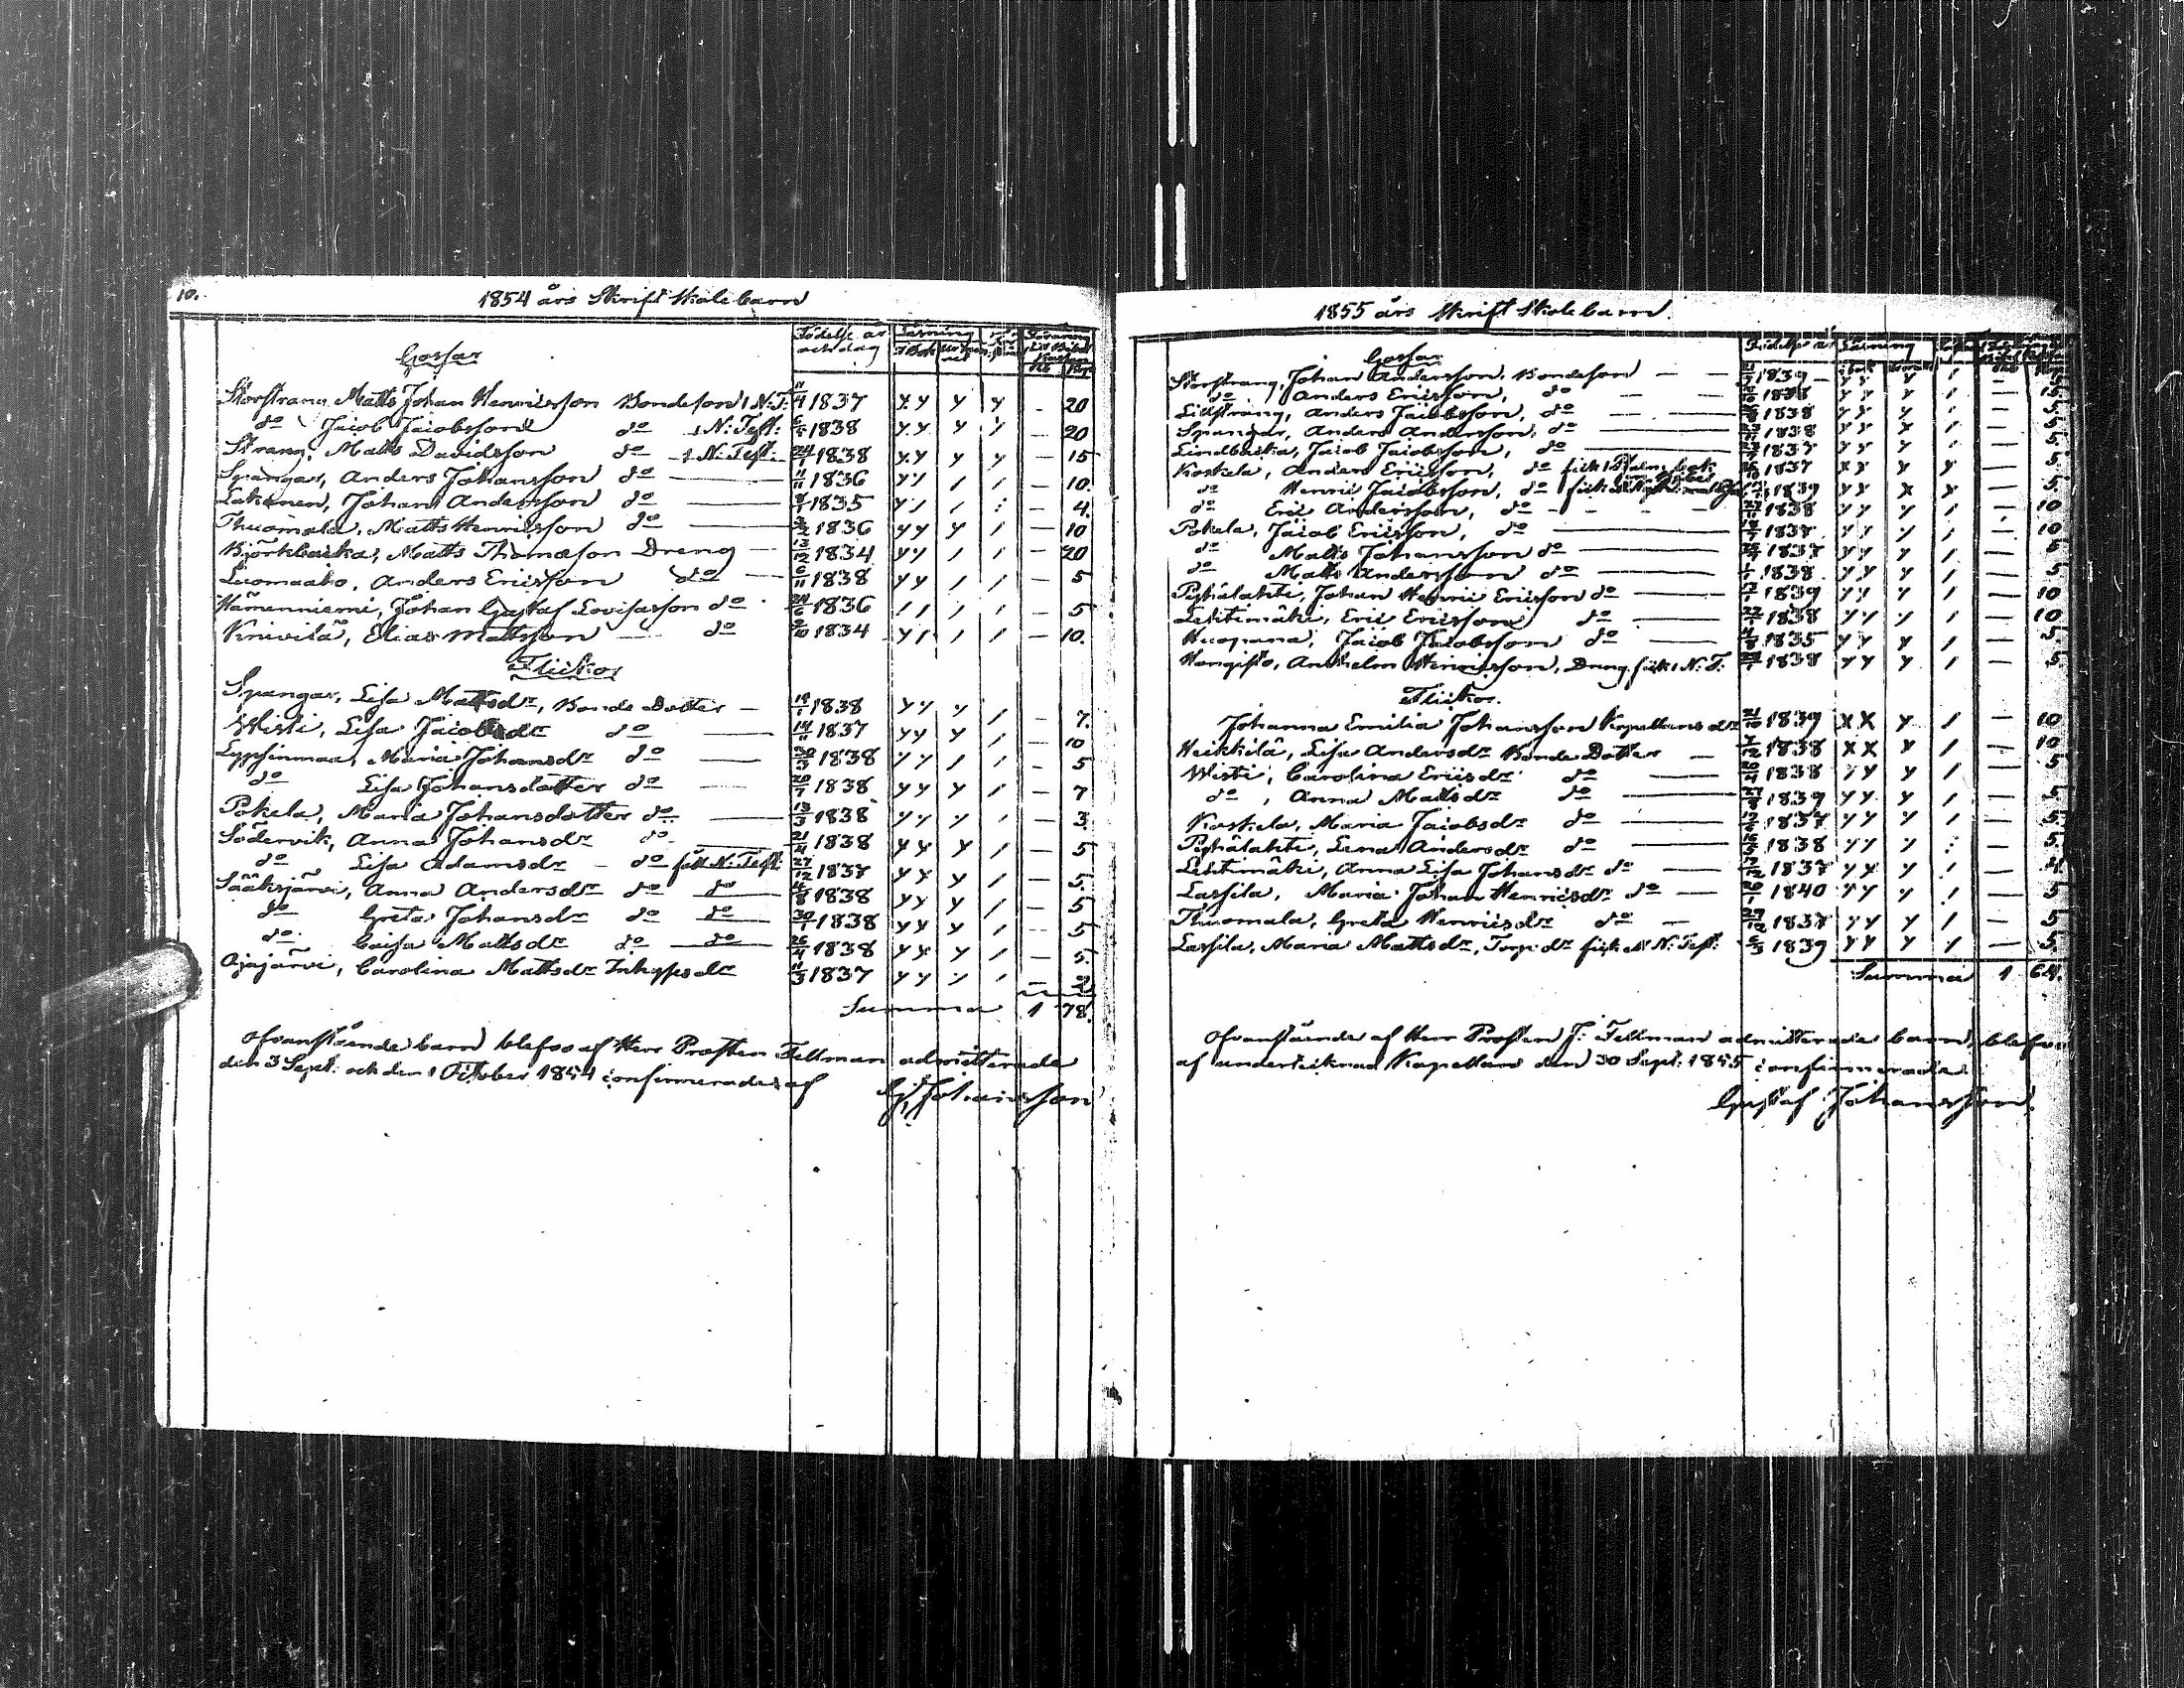 10.
1854 års Skriftskolebarn
Födelse år och dag
Läsning
I Bok
Gossar
Storstrang, Matts Johan Henricsson Bondeson 1 N.T. 11/4 1837 — 20
do Jacob Jacobsson do 1 N. Test. 1838 — 20
Strang, Matts Davidsson do 1 N. Test. 24/1 1838 — 15
Spangar, Anders Johansson do 11/11 1836 — 10.
Lakanen, Johan Andersson do 1835 — 4.
Thuomala, Matts Henricsson do 1836 — 10
Björkbacka, Matts Thomasson Dreng — 13/12 1834 — 20
Luomaaho, Anders Ericsson do — 6/11 1838 — 5
Hämenniemi, Johan Gustaf Lovisasson do 24/6 1836 — 5
Knivilä, Elias Mattsson do 9/10 1834 — 10.
Flickor
Spangar, Lisa Mattsdr, Bonde Dotter — 19/1 1838 — 7.
Wirsti, Lisa Jacobsdr do 14/11 1837 — 10
Lypsinmaa, Maria Johansdr do 30/3 1838 — 5
do Lisa Johansdotter do 20/1 1838 — 7
Pokela, Maria Johansdotter do 13/3 1838 — 3.
Södervik, Anna Johansdr do 21/4 1838 — 5
do Lisa Adamsdr do fått N. Test. 27/12 1837 — 5.
Sääksjärvi, Anna Andersdr do do 1838 — 5
do Greta Johansdr do do 1838 — 5
do Caisa Mattsdr do do 26/4 1838 — 5.
Ojajärvi, Carolina Mattsdr Inhysesdr 11/3 1837 — 2
Summa 1 78.
Ofvanstående barn blefvo af Herr Prosten Fellman admitterade
den 3 Sept. och den 1 October 1854 confirmerades af
Gf Johansson
1855 års Skriftskolebarn.
Läsning
Gossar
Storstrang, Johan Andersson, Bondeson — 1839 —
do Anders Ericsson, do — 1838 — 15.
Lillstrang, Anders Jacobsson, do — 1838 — 5.
Spangar, Anders Andersson, do — 1838 — 5.
Lindbacka, Jacob Jacobsson, do — 1837 — 5.
Koskela, Anders Ericsson, do fick 1 Psalmbok 1837 — 5.
do Henric Jacobsson, do fick 1839 — 5.
do Eric Andersson, do — 1838 — 10
Pokela, Jacob Ericsson, do — 1837 — 10
do Matts Johansson do — 1837 — 5
do Matts Andersson do — 1838 — 5.
Pyhälahti, Johan Henric Ericsson do — 1839 — 10
Lehtimäki, Eric Ericsson do — 1838 — 10
Huopana, Jacob Jacobsson do — 1835 — 5.
Hangisto, Anshelm Henricsson, Dreng, fick 1 N.T. 1838 — 5.
Flickor.
Johanna Emilia Johansson Kapellans dr 21/10 1839 — 10
Heikkilä, Lisa Andersdr Bonde Dotter — 1838 — 10
Wirsti, Carolina Ericsdr do — 1838 — 5
do, Anna Mattsdr do — 1839 — 5.
Koskela, Maria Jacobsdr do — 1837 — 5.
Pyhälahti, Lena Andersdr do — 1838 — 5.
Lehtimäki, Anna Lisa Johansdr do — 1837 — 4.
Lassila, Maria Johan Henricsdr do — 1840 — 5
Thuomala, Greta Henricsdr do — 1837 — 5
Lassila, Maria Mattsdr, Torp. dr fick ett N. Test. 1839 — 5.
Summa 1 64.
Ofvanstående af Herr Prosten J: Fellman admitterade barn, blefvo
af undertecknad Kapellan den 30 Sept. 1855 confirmerade.
Gustaf Johansson.